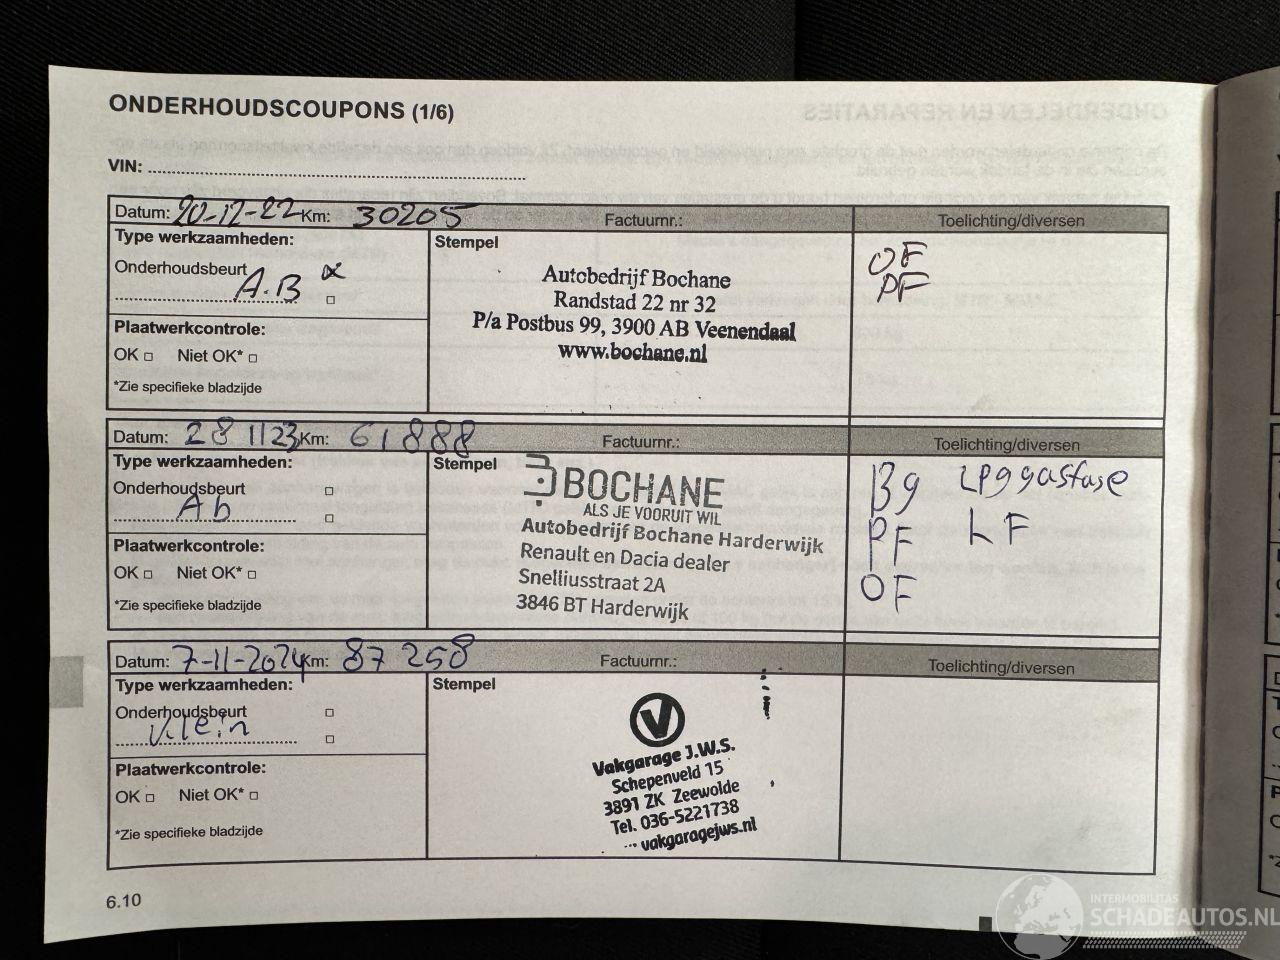 ONDERHOUDSCOUPONS (1/6)
VIN:
Datum: 20-12-22 Km: 30205 Factuurnr.: Toelichting/diversen
Type werkzaamheden:
Onderhoudsbeurt
A.B
Plaatwerkcontrole:
OK □ Niet OK* □
*Zie specifieke bladzijde
Stempel
Autobedrijf Bochane
Randstad 22 nr 32
P/a Postbus 99, 3900 AB Veenendaal
www.bochane.nl
OF
PF
Datum: 281123 Km: 61888 Factuurnr.: Toelichting/diversen
Type werkzaamheden:
Onderhoudsbeurt □
Ab □
Plaatwerkcontrole:
OK □ Niet OK* □
*Zie specifieke bladzijde
Stempel
BOCHANE
ALS JE VOORUIT WIL
Autobedrijf Bochane Harderwijk
Renault en Dacia dealer
Snelliusstraat 2A
3846 BT Harderwijk
Bg LPggasfase
PF LF
OF
Datum: 7-11-2024 Km: 87 258 Factuurnr.: Toelichting/diversen
Type werkzaamheden:
Onderhoudsbeurt □
klein □
Plaatwerkcontrole:
OK □ Niet OK* □
*Zie specifieke bladzijde
Stempel
V
Vakgarage J.W.S.
Schepenveld 15
3891 ZK Zeewolde
Tel. 036-5221738
vakgaragejws.nl
6.10
INTERMOBILITAS
SCHADEAUTOS.NL